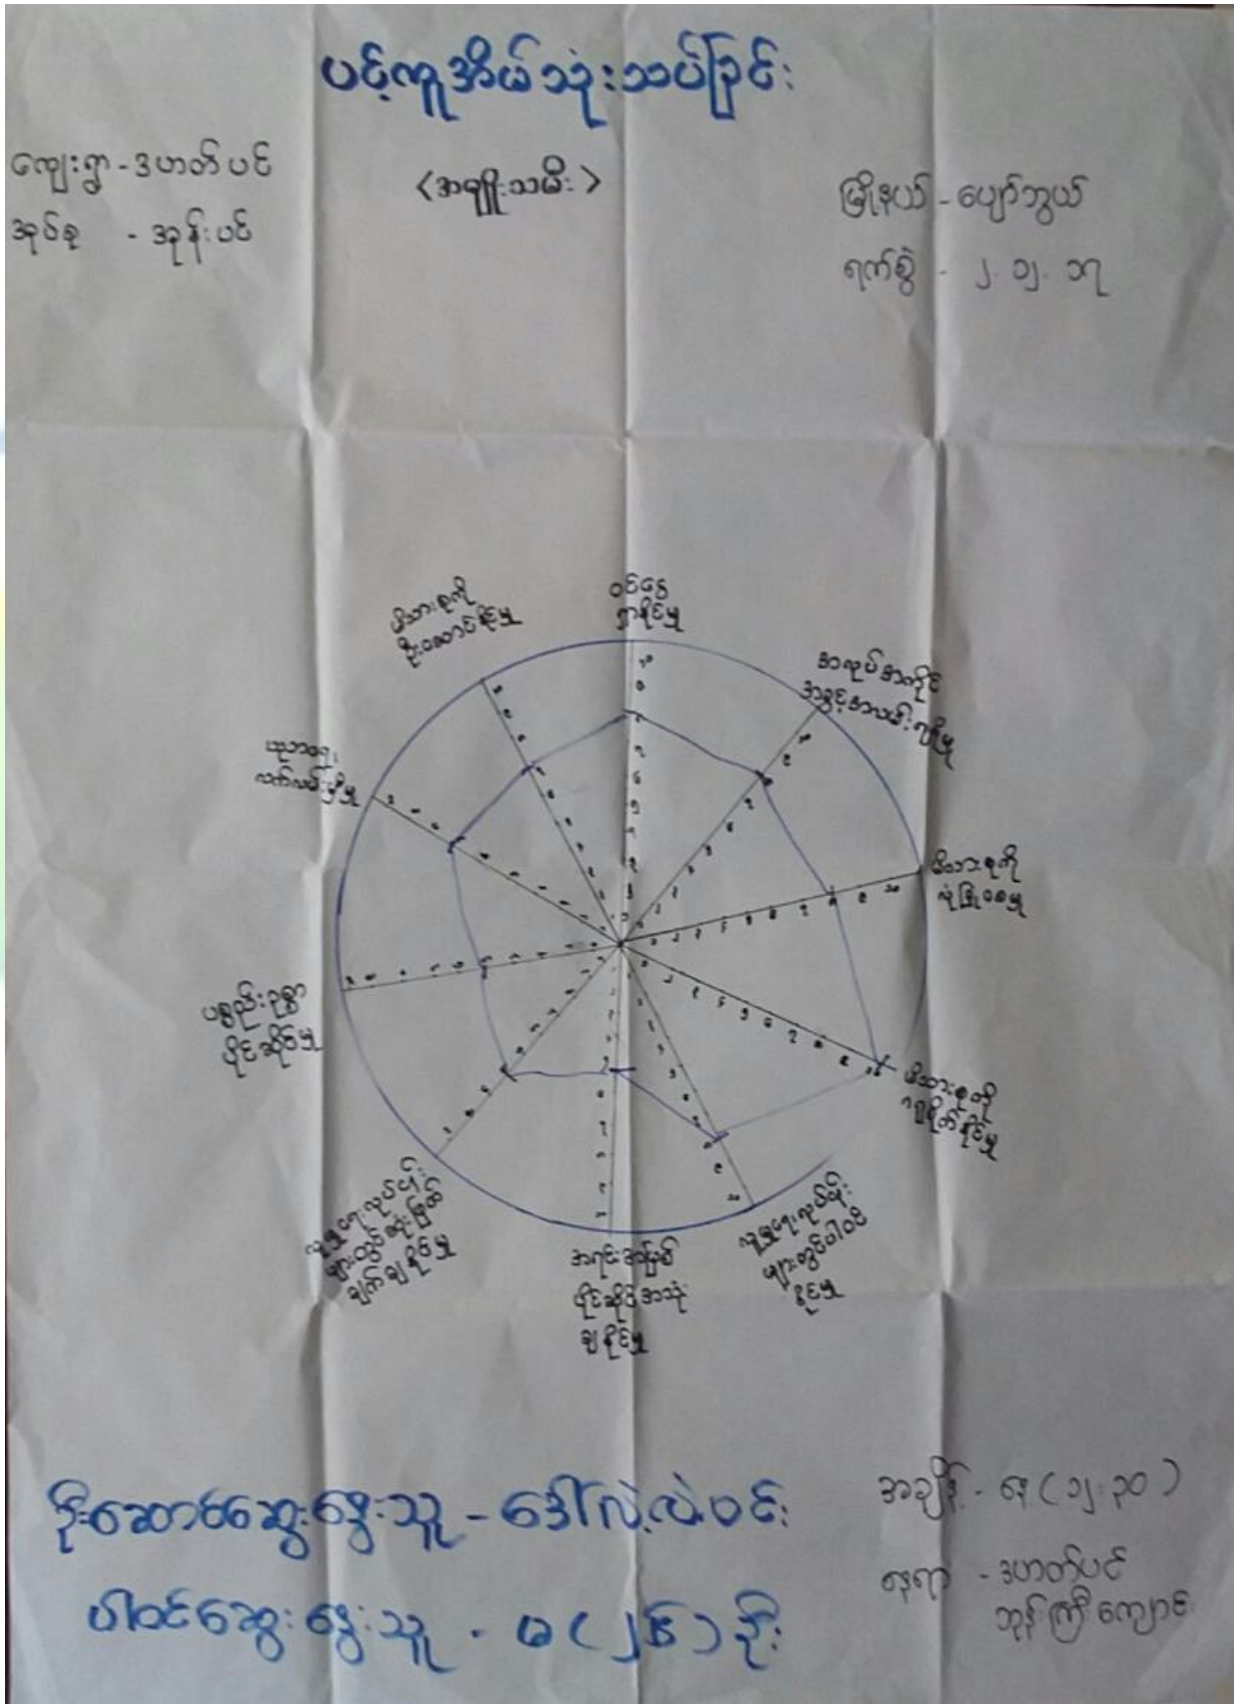 ပင့်ကူအိမ်သုံးသပ်ခြင်း
ကျေးရွာ - ဒဟတ်ပင်
<အမျိုးသမီး>
မြို့နယ် - ပျော်ဘွယ်
အုပ်စု - အုန်းပင်
ရက်စွဲ - ၂. ၁၂. ၁၇
ဝင်ငွေ
ရှာနိုင်မှု
အလုပ်အကိုင်
အခွင့်အလမ်းရရှိမှု
မိသားစုကို
လုံခြုံစေမှု
မိသားစုကို
လူမှုရေးလုပ်ငန်း
များတွင်ပါဝင်
နိုင်မှု
အရင်းအမြစ်
ပိုင်ဆိုင်အသုံး
ချနိုင်မှု
လူမှုရေးလုပ်ငန်း
များတွင်ဆုံးဖြတ်
ချက်ချနိုင်မှု
ပစ္စည်းဥစ္စာ
ပိုင်ဆိုင်မှု
ဗဟုသုတ
လက်လှမ်းမှီမှု
မိသားစုကို
ဦးဆောင်နိုင်မှု
ဦးဆောင်ဆွေးနွေးသူ - ဒေါ်လဲ့လဲ့ဝင်း
ပါဝင်ဆွေးနွေးသူ - မ (၂၆) ဦး
အချိန် - နေ့ (၁၂:၃၀)
နေရာ - ဒဟတ်ပင်
ဘုန်းကြီးကျောင်း